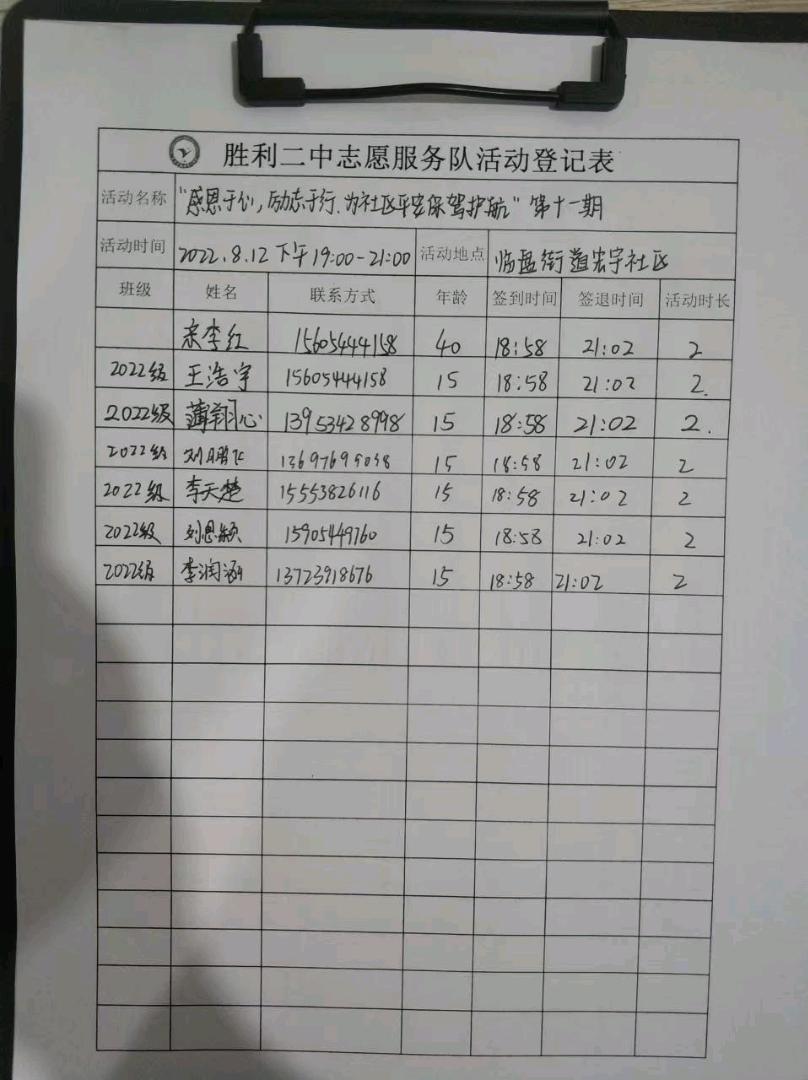 胜利二中志愿服务队活动登记表
活动名称 "感恩于心,励志于行.为社区平安保驾护航"第十一期
活动时间 2022.8.12 下午19:00-21:00 活动地点 临盘街道宏宇社区
班级 姓名 联系方式 年龄 签到时间 签退时间 活动时长
宗李红 15605444158 40 18:58 21:02 2
2022级 王浩宇 15605444158 15 18:58 21:02 2.
2022级 薄翔心 13953428998 15 18:58 21:02 2.
2022级 刘鹏飞 15 18:58 21:02 2
2022级 李天楚 15553826116 15 18:58 21:02 2
2022级 刘恩颖 15905449760 15 18:58 21:02 2
2022级 李润涵 13723918676 15 18:58 21:02 2